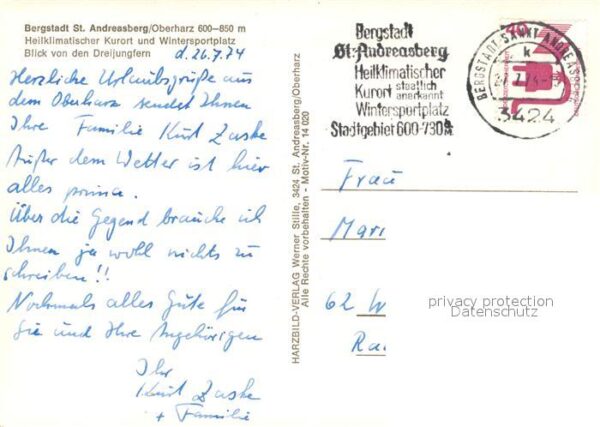 Bergstadt St. Andreasberg/Oberharz 600–850 m
Heilklimatischer Kurort und Wintersportplatz
Blick von den Dreijungfern
d. 26.7.74
Herzliche Urlaubsgrüße aus
dem Oberharz sendet Ihnen
Ihre Familie Kurt Zaske
Außer dem Wetter ist hier
alles prima.
Über die Gegend brauche ich
Ihnen ja wohl nichts zu
schreiben!!
Nochmals alles Gute für
Sie und Ihre Angehörigen
Ihr
Kurt Zaske
+ Familie
HARZBILD-VERLAG Werner Stille, 3424 St. Andreasberg/Oberharz
Alle Rechte vorbehalten - Motiv-Nr. 14 020
Bergstadt
St. Andreasberg
Heilklimatischer
Kurort staatlich anerkannt
Wintersportplatz
Stadtgebiet 600-730m
BERGSTADT SANKT ANDREAS
k
3424
Frau
Mari
62 W
Ra
privacy protection
Datenschutz